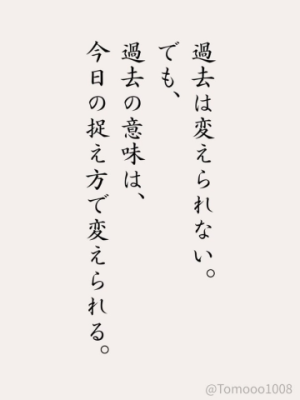 過去は変えられない。
でも、
過去の意味は、
今日の捉え方で変えられる。
@Tomooo1008